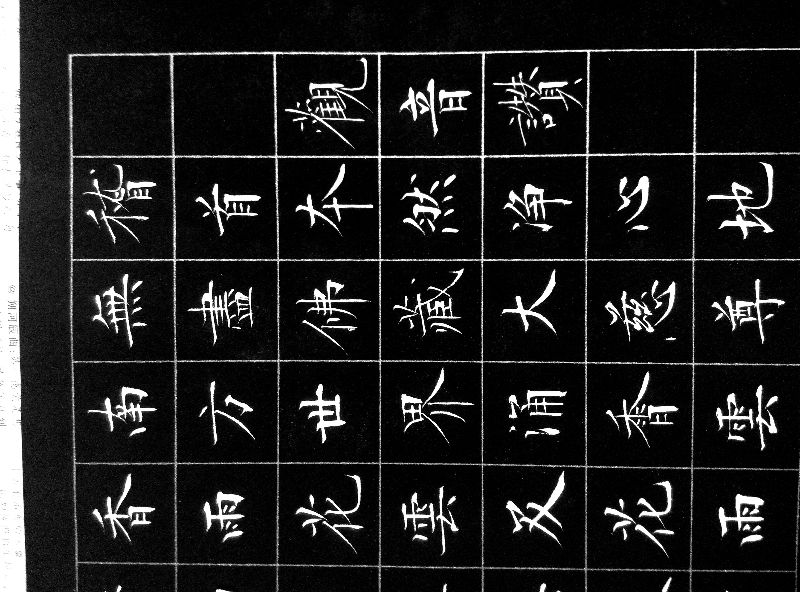 觀音讚
稽首本然淨心地
無盡佛藏大慈尊
南方世界涌香雲
香雨花雲及花雨